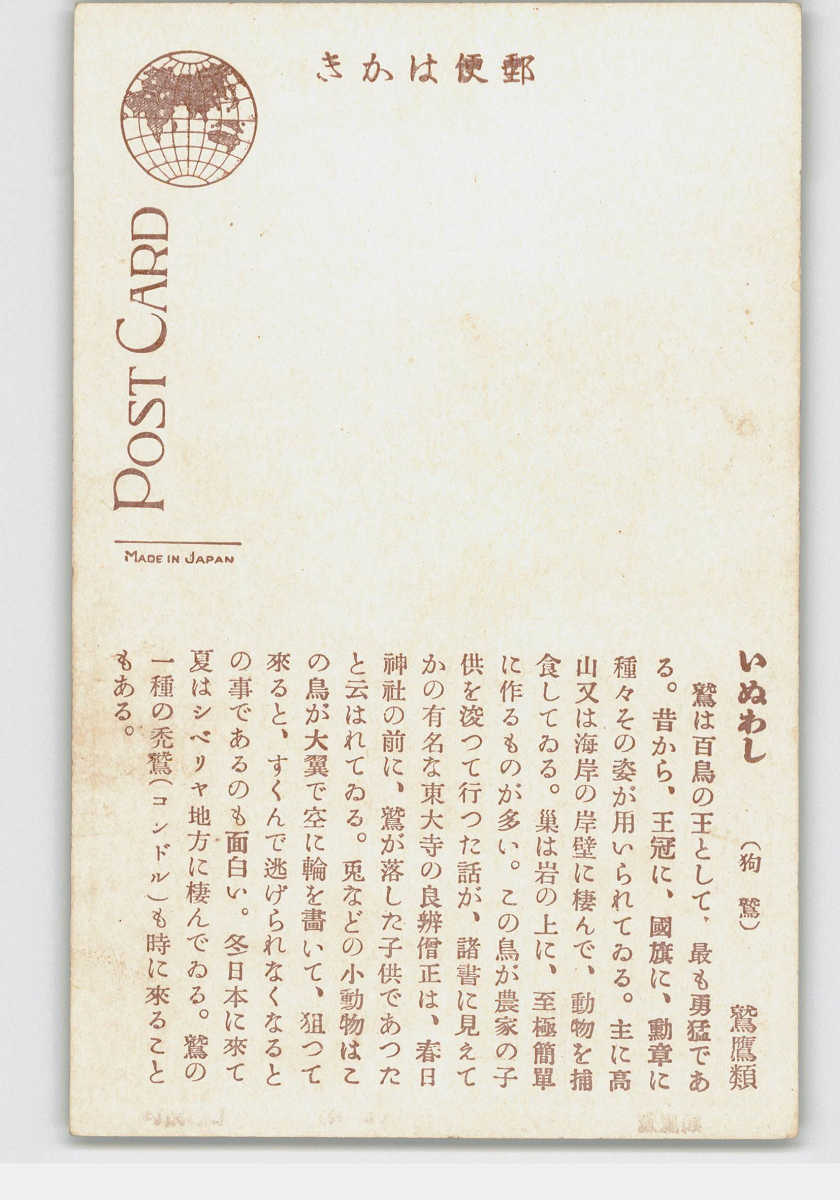 郵便はかき
POST CARD
MADE IN JAPAN
いぬわし （狗鷲） 鷲鷹類
鷲は百鳥の王として、最も勇猛であ
る。昔から、王冠に、國旗に、勳章に
種々その姿が用いられてゐる。主に高
山又は海岸の岸壁に棲んで、動物を捕
食してゐる。巣は岩の上に、至極簡單
に作るものが多い。この鳥が農家の子
供を浚つて行つた話が、諸書に見えて
かの有名な東大寺の良辨僧正は、春日
神社の前に、鷲が落した子供であつた
と云はれてゐる。兎などの小動物はこ
の鳥が大翼で空に輪を畵いて、狙つて
來ると、すくんで逃げられなくなると
の事であるのも面白い。冬日本に來て
夏はシベリヤ地方に棲んでゐる。鷲の
一種の禿鷲（コンドル）も時に來ること
もある。